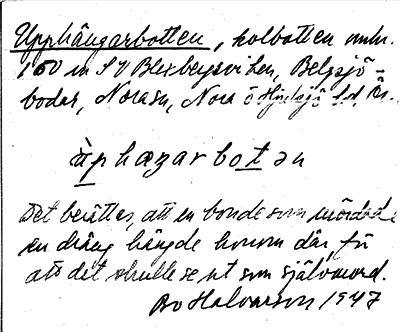 Upphängarbotten, kolbotten omkr.
150 m SV Blexbergsviken, Belgsjö-
bodar, Norasn, Nora o Hjulsjö hd, Ör.
ùphæŋarbotən
Det berättas, att en bonde som mördade
en dräng hängde honom där, för
att det skulle se ut som självmord.
Bo Halvarson 1947